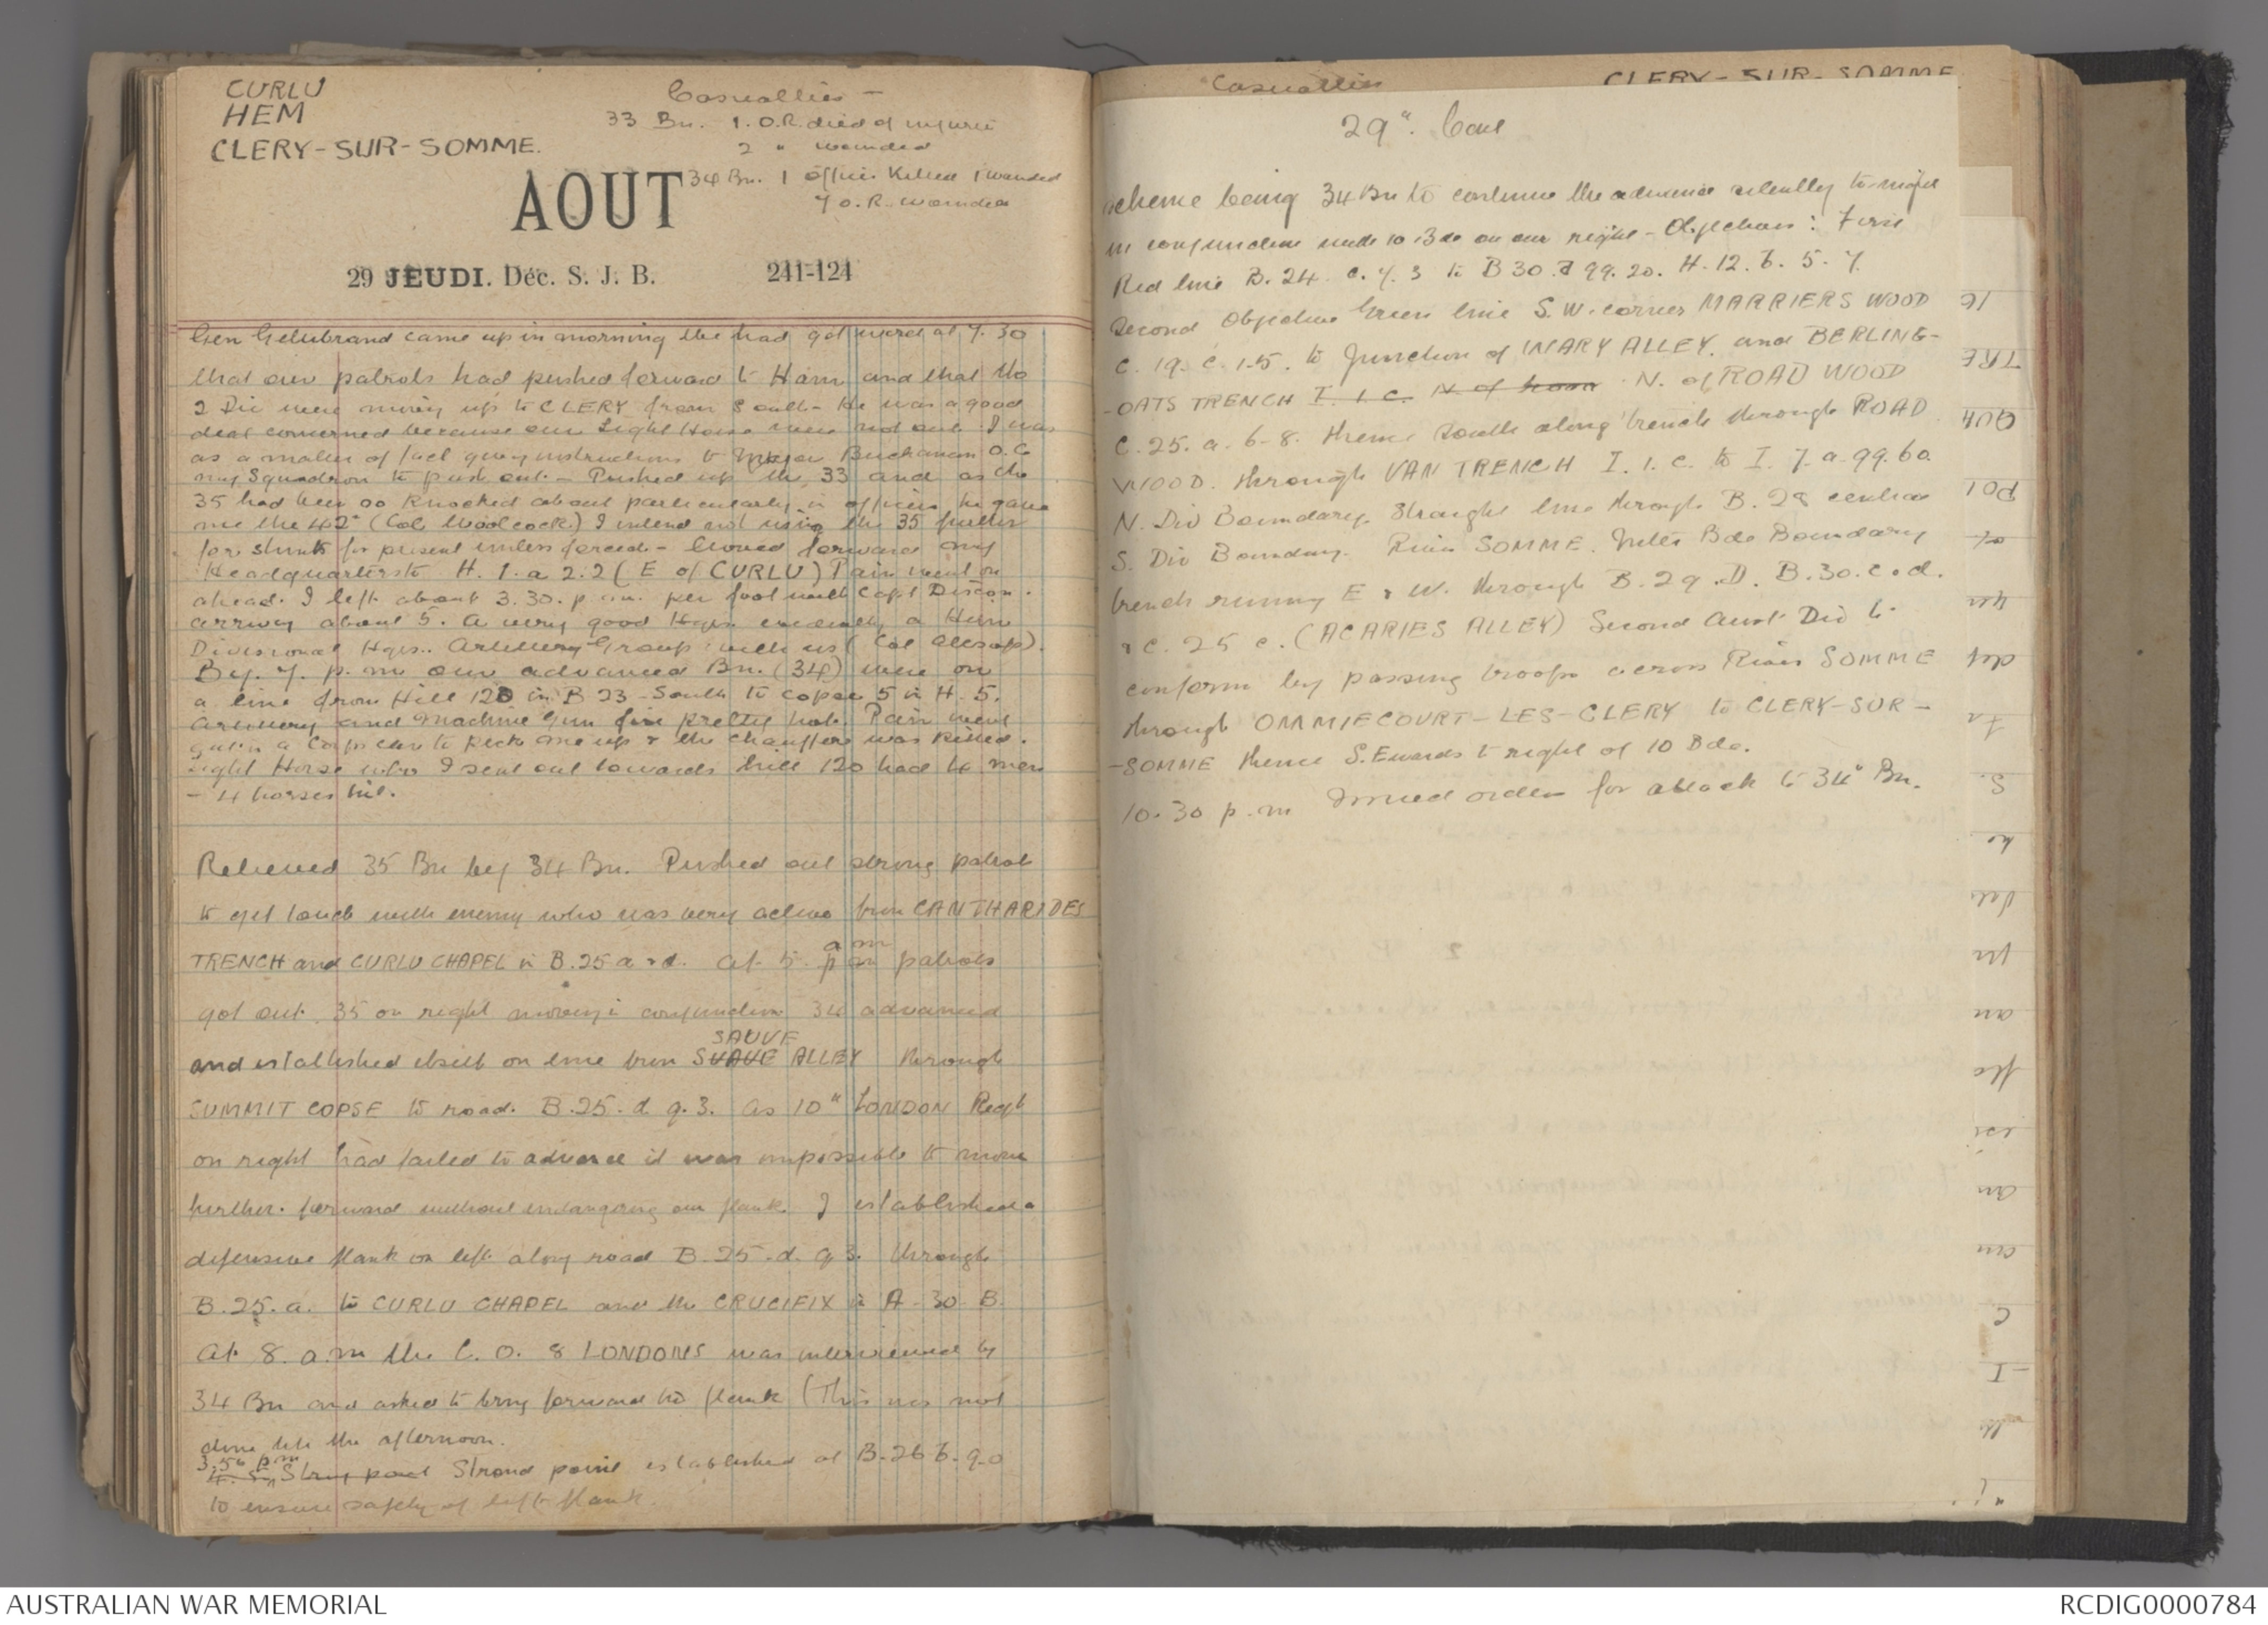 CURLU
HEM
CLERY-SUR-SOMME.
Casualties -
33 Bn. 1. O.R. died of injuries
2 " wounded
34 Bn. 1 officer Killed 1 wounded
7 O.R. wounded
AOUT
29 JEUDI. Déc. S. J. B. 241-124
Gen Gellibrand came up in morning He had got word at 7.30
that our patrols had pushed forward to Ham and that the
2 Div were moving up to CLERY from South - He was a good
deal concerned because our Light Horse were not out. I was
as a matter of fact giving instructions to Major Buchanan O.C
my Squadron to push out. - Pushed up the 33 and as the
35 had been so knocked about particularly in officers he gave
me the 42" (Col Woolcock) I intend not using the 35 further
for stunts for present unless forced - Moved forward my
Headquarters to H. 1. a 2.2 (E of CURLU) Pain went on
ahead. I left about 3.30. p.m. per foot with Capt Dixon.
arriving about 5. A very good Hqrs. evidently a Hun
Divisional Hqrs.. Artillery Group with us (Col Allsop).
By 7. p.m our advanced Bn. (34) were on
a line from Hill 120 in B 23 South to copse 5 in H. 5.
Artillery and Machine Gun fire pretty hot. Pain went
in a Corps car to pick me up & the chauffeur was killed.
Light Horse who I sent out towards hill 120 had 4 men
- 4 horses hit.
Relieved 35 Bn by 34 Bn. Pushed out strong patrol
to get touch with enemy who was very active from CANTHARIDES
TRENCH and CURLU CHAPEL in B.25 a & d. At 5. p m patrols
a m
got out. 35 on right moving in conjunction 34 advanced
and established itself on line from SUAVE ALLEY through
SAUVE
SUMMIT COPSE to road. B.25. d 9.3. As 10" LONDON Regt
on right had failed to advance it was impossible to move
further forward without endangering our flank. I established a
defensive flank on left along road B.25.d. 9 3. through
B.25.a. to CURLU CHAPEL and the CRUCIFIX in A.30.B.
At 8. a.m the C.O. 8 LONDONS was interviewed by
34 Bn and asked to bring forward his flank (This was not
done till the afternoon.
3.50 p.m Strong post Strong point established at B.26 b.9.0
to ensure safety of left flank.
Casualties
CLERY-SUR-SOMME
29". Cont
scheme being 34 Bn to continue the advance silently to-night
in conjunction with 10 Bde on our right - Objectives: First
Red line B. 24. c. 7. 3 to B 30. d 99. 20. H. 12. b. 5. 7.
Second Objective Green line S.W. corner MARRIERS WOOD
C. 19. c. 1.5. to Junction of INARY ALLEY. and BERLING-
-OATS TRENCH I. 1. C. N of N. of ROAD WOOD
C. 25. a. 6-8. thence South along trench through ROAD
WOOD. through VAN TRENCH I. 1. c. to I. 7. a. 99.60.
N. Div Boundary. Straight line through B. 28 central
S. Div Boundary. River SOMME. Inter Bde Boundary
trench running E & W. through B.29.D. B.30.c.d.
& C. 25 c. (ACARIES ALLEY) Second Aust Div to
conform by passing troops across River SOMME
through OMMIECOURT-LES-CLERY to CLERY-SUR-
-SOMME thence S.Ewards to right of 10 Bde.
10.30 p.m Issued orders for attack to 34" Bn.
AUSTRALIAN WAR MEMORIAL
RCDIG0000784